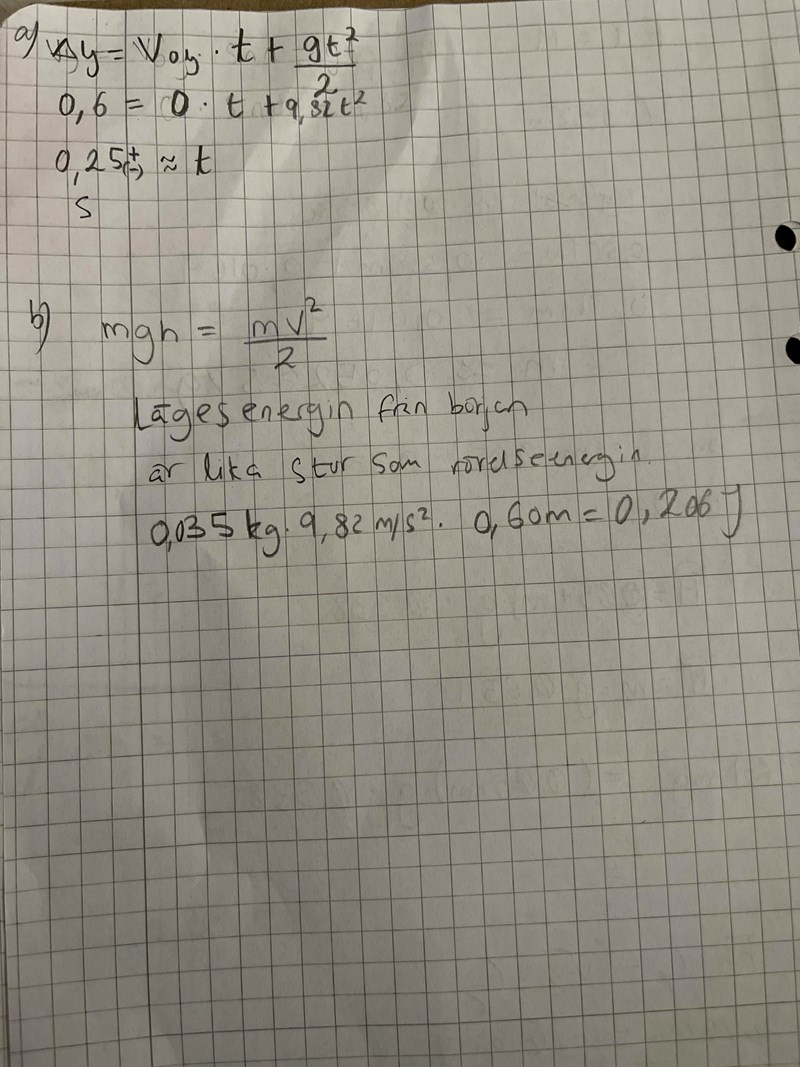 a) Δy = V₀y · t + gt²/2
0,6 = 0 · t + 9,82t²
0,25(±) ≈ t
s
b) mgh = mv²/2
Lägesenergin från början
är lika stor som rörelseenergin.
0,035 kg · 9,82 m/s² · 0,60m = 0,206 J